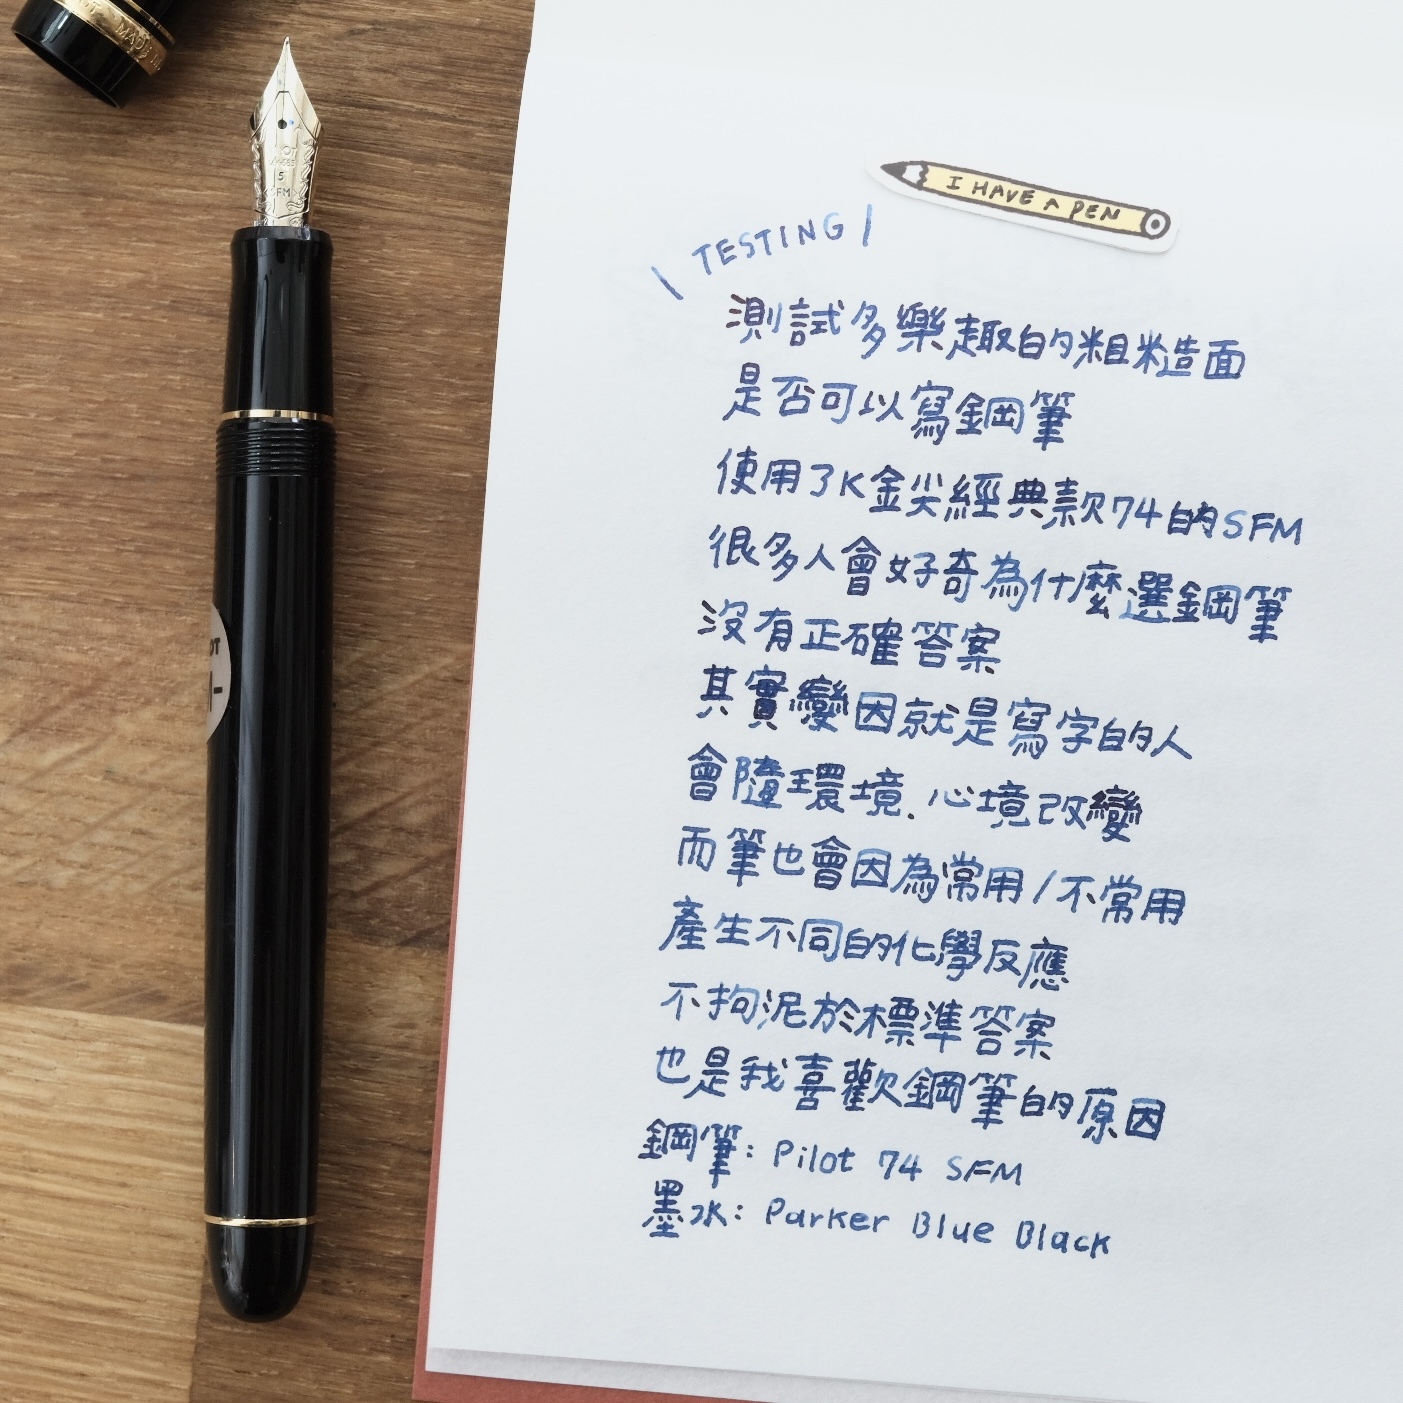 MADE
PILOT
14K585
5
SFM
I HAVE A PEN
\ TESTING /
測試多樂趣的粗糙造面
是否可以寫鋼筆
使用了K金尖經典款74的SFM
很多人會好奇為什麼選鋼筆
沒有正確答案
其實變因就是寫字的人
會隨環境、心境改變
而筆也會因為常用/不常用
產生不同的化學反應
不拘泥於標準答案
也是我喜歡鋼筆的原因
鋼筆：Pilot 74 SFM
墨水：Parker Blue Black